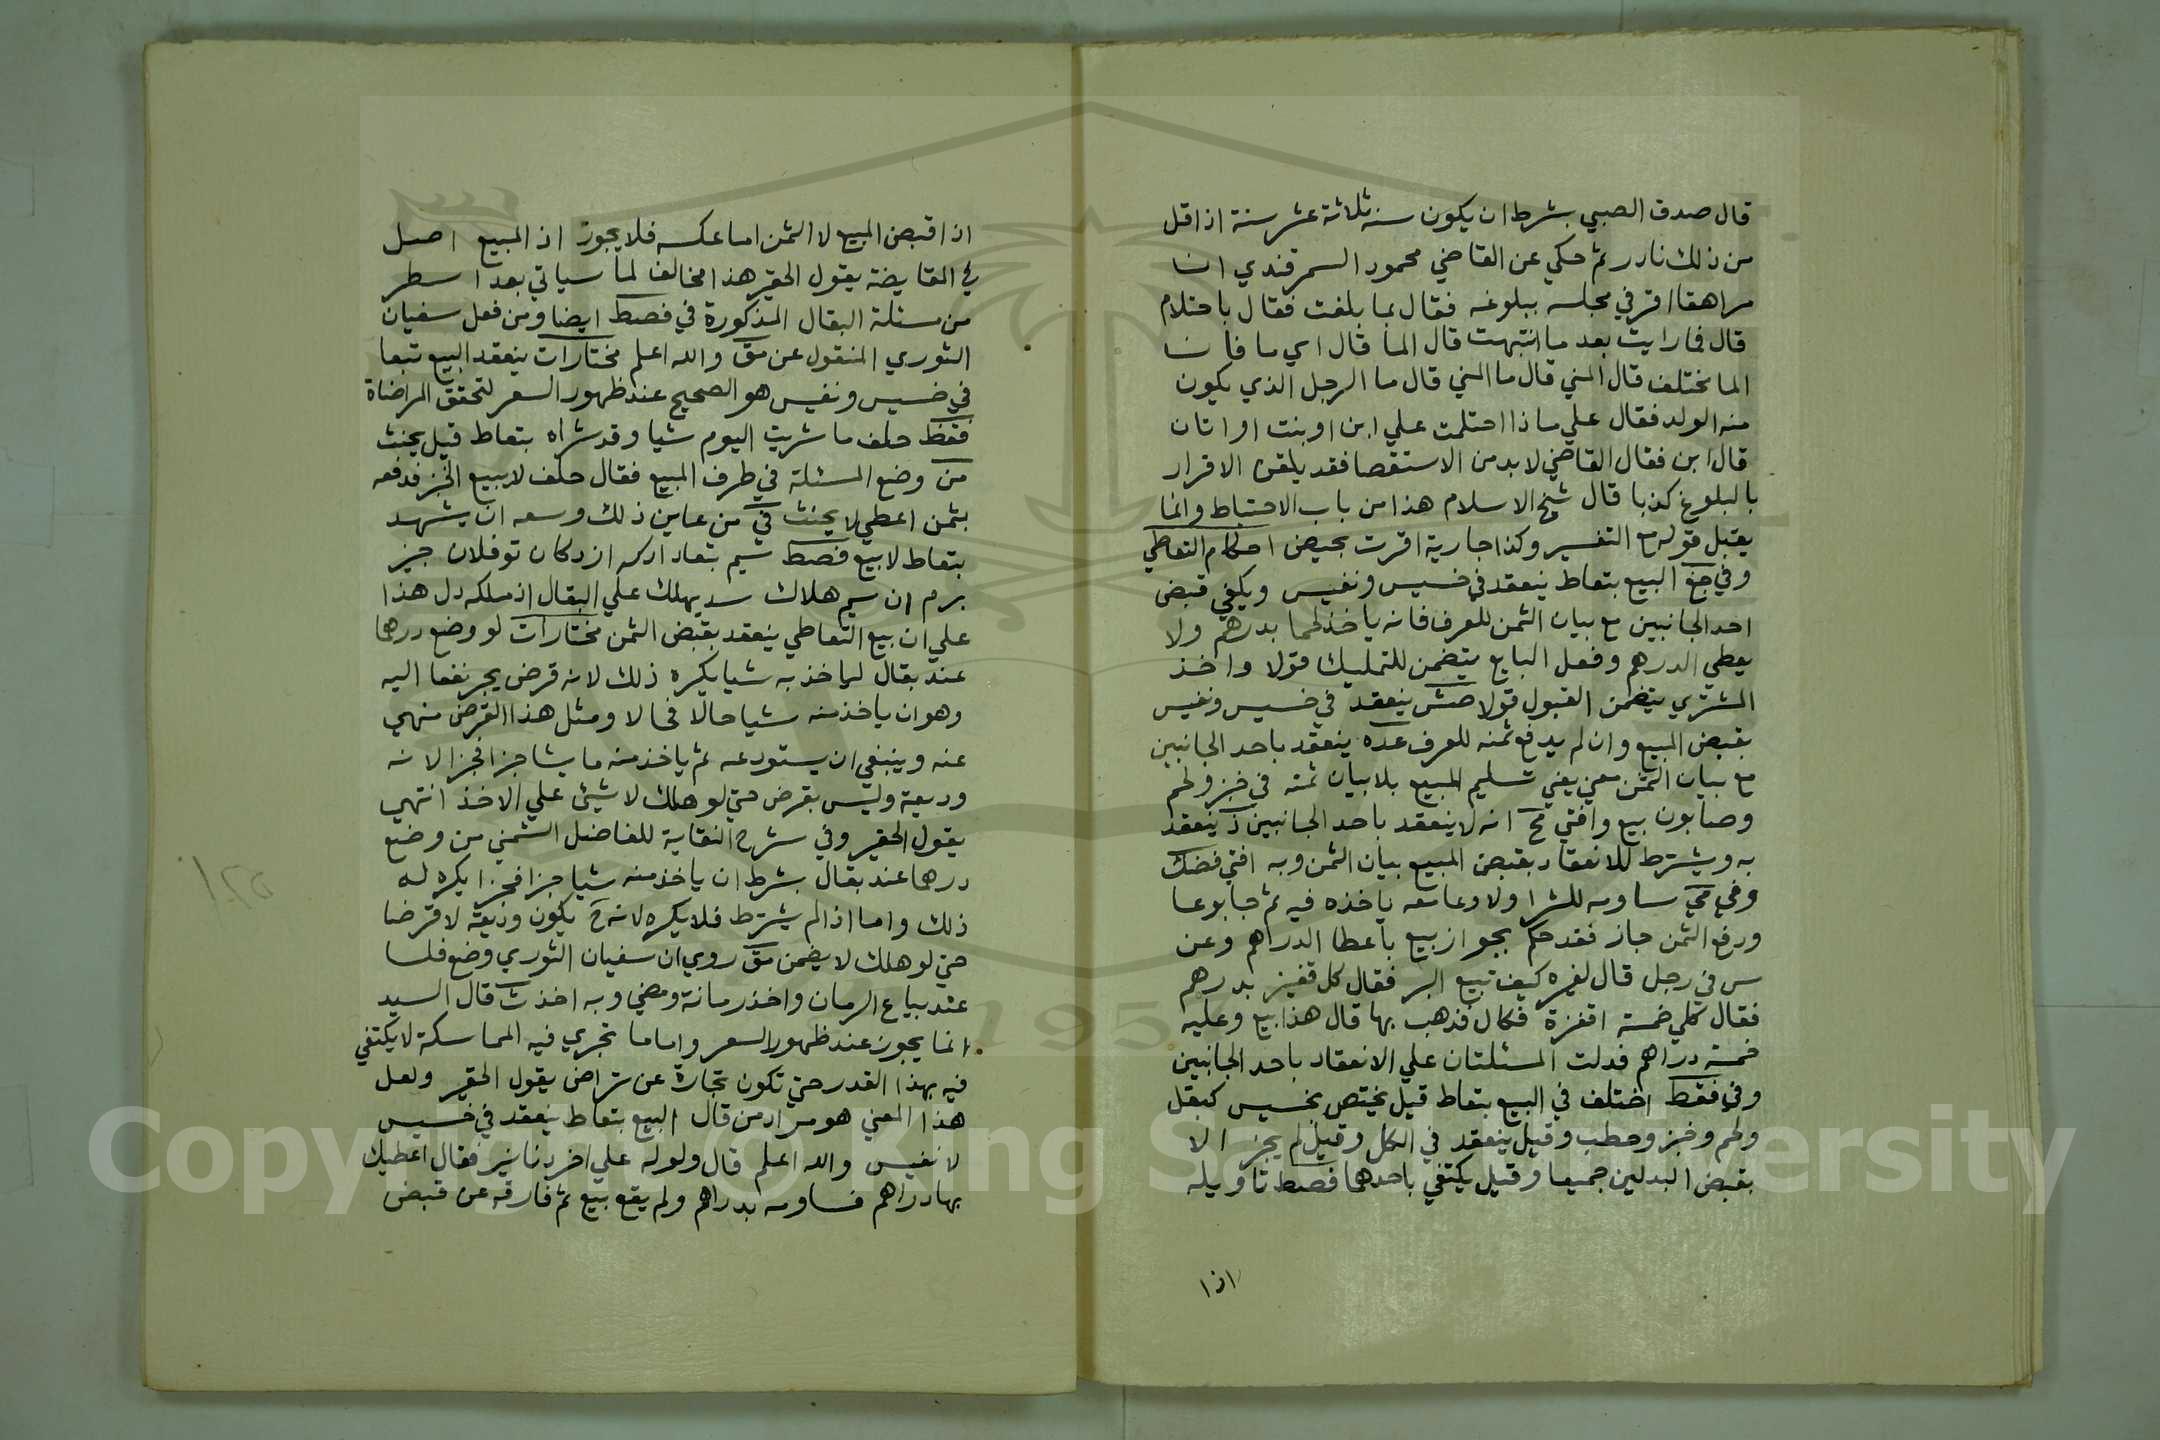 قال صدق الصبي بشرط ان يكون سنه ثلاثة عشر سنة اذ اقل
من ذلك نادر ثم حكي عن القاضي محمود السمرقندي ان
مراهقا اقر في مجلسه ببلوغه فقال بما بلغت فقال باحتلام
قال فما رايت بعد ما انتبهت قال الما قال اي ما فان
الما يختلف قال المني قال ما المني قال ما الرجل الذي يكون
منه الولد فقال علي ماذا احتلمت علي ابن او بنت او اتان
قال ابن فقال القاضي لا بد من الاستقصا فقد يلقن الاقرار
بالبلوغ كذبا قال شيخ الاسلام هذا من باب الاحتياط وانما
يقبل قوله مع التفسير وكذا جارية اقرت بحيض احكام التعاطي
وفي البيع بتعاط ينعقد في خسيس ونفيس ويكفي قبض
احد الجانبين مع بيان الثمن للعرف فانه ياخذ لحما بدرهم ولا
يعطي الدرهم وفعل البايع يتضمن للتمليك قولا واخذ
المشتري يتضمن القبول قولا ينعقد في خسيس ونفيس
بقبض المبيع وان لم يدفع ثمنه للعرف عده ينعقد باحد الجانبين
مع بيان الثمن يعني تسليم المبيع بلا بيان ثمنه في خبز ولحم
وصابون بيع وافتي انه لا ينعقد باحد الجانبين ينعقد
به ويشترط للانعقاد بقبض المبيع بيان الثمن وبه افتي
وفي ساومه للشرا ولا وعا معه ياخذه فيه ثم جا بوعا
ودفع الثمن جاز فقد حكم بجواز بيع باعطا الدراهم وعن
س في رجل قال لغيره كيف تبيع البر فقال كل قفيز بدرهم
فقال كلي خمسة اقفزة فكال فذهب بها قال هذا بيع وعليه
خمسة دراهم فدلت المسئلتان علي الانعقاد باحد الجانبين
وفي فقط اختلف في البيع بتعاط قيل يختص بخسيس كبقل
ولحم وخبز وحطب وقيل ينعقد في الكل وقيل لم يجز الا
بقبض البدلين جميعا وقيل يكتفي باحدهما فصط تاويله
اذا
اذا قبض المبيع لا الثمن اما عكسه فلا يجوز اذ المبيع اصل
في المقايضة يقول الحقير هذا مخالف لما سياتي بعد اسطر
من مسئلة البقال المذكورة في فصط ايضا ومن فعل سفيان
الثوري المنقول عن مق والله اعلم مختارات ينعقد البيع تبعا
في خسيس ونفيس هو الصحيح عند ظهور السعر لتحقق المراضاة
فقط حلف ما شريت اليوم شيا وقد شراه بتعاط قيل يحنث
من وضع المسئلة في طرف المبيع فقال حلف لا يبيع الخبز فدفعه
بثمن اعطي لا يحنث في من عاين ذلك وسعه ان يشهد
بتعاط لا بيع فصط سيم بتعاد اركه از دكان تو فلان جيز
برم ان سيم هلاك سد يهلك علي البقال اذ ملكه دل هذا
علي ان بيع التعاطي ينعقد بقبض الثمن مختارات لو وضع درهما
عند بقال لياخذ به شيا يكره ذلك لانه قرض يجر نفعا اليه
وهو ان ياخذ منه شيا حالا فحالا ومثل هذا القرض منهي
عنه وينبغي ان يستودعه ثم ياخذ منه ما يشا جزا فجزا لانه
وديعة وليس بقرض حتي لو هلك لا شيئ علي الاخذ انتهي
يقول الحقير وفي شرح النقاية للفاضل الشمني من وضع
درهما عند بقال بشرط ان ياخذ منه شيا جزا فجزا يكره له
ذلك واما اذا لم يشترط فلا يكره لانه ح يكون وديعة لا قرضا
حتي لو هلك لا يضمن مق روي ان سفيان الثوري وضع فلسا
عند بياع الرمان واخذ رمانة ومضي وبه اخذ ث قال السيد
انما يجوز عند ظهور السعر واما ما تجري فيه المماسكة لا يكتفي
فيه بهذا القدر حتي تكون تجارة عن تراض يقول الحقير ولعل
هذا المعني هو مراد من قال البيع بتعاط ينعقد في خسيس
لا نفيس والله اعلم قال ولو له علي اخر دنانير فقال اعطيك
بها دراهم فساومه بدراهم ولم يقع بيع ثم فارقه عن قبض
Copyright © King Saud University
1957